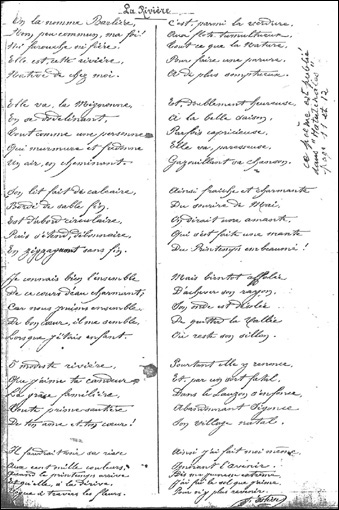 La Rivière
On la nomme Barlière,
Nom peu commun, ma foi!
Ni farouche ni fière!
Elle est, cette rivière
Native de chez moi.
Elle va, la Mignonne,
En se dodelinant,
Tout comme une personne
Qui murmure et fredonne
Un air, en cheminant.
Son lit fait de calcaire,
Bordé de sable fin,
Est d'abord circulaire,
Puis s'étend, débonnaire,
En zigzagant sans fin.
Je connais bien l'ensemble
De ce cours d'eau charmant,
Car nous jouions ensemble
De bon cœur, il me semble,
Lorsque j'étais enfant.
O modeste rivière,
Que j'aime ta candeur
La grâce familière,
Toute primesautière
De ton âme et ton cœur!
Il faudrait voir sa rive
Aux cent mille couleurs,
Quand le printemps arrive
Et qu'elle, à la dérive
Vogue à travers les fleurs.
C'est, parmi la verdure,
Aux flots tumultueux
Tout ce que la Nature,
Pour faire une parure,
A de plus somptueux.
Et, doublement heureuse,
A la belle saison,
Parfois capricieuse,
Elle va, paresseuse,
Gazouillant sa chanson.
Ainsi fraîche et charmante
Du sourire de Mai,
On dirait une amante
Qui s'est faite une mante
Du Printemps embaumé!
Mais bientôt affolée
D'achever son rayon,
Son onde est désolée
De quitter la Vallée
Où reste son sillon.
Pourtant elle y renonce
Et, par un sort fatal,
Dans le Lauzon s'enfonce,
Abandonnant
Son village natal.
Ainsi j'ai fait moi-même
Ignorant l'avenir.
Dès ma jeunesse extrême
J'ai fui le sol que j'aime
Pour n'y plus revenir.
ce poème est publié
dans
pages 11 et 12